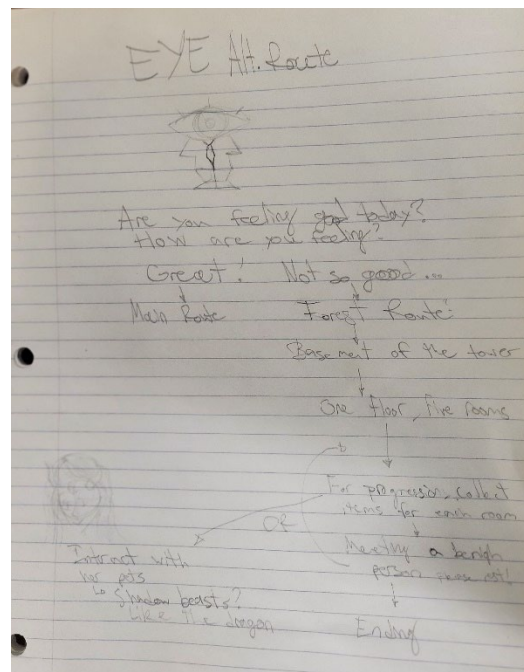 EYE Alt. Route
Are you feeling good today?
How are you feeling?
Great! Not so good...
Main Route Forest Route:
Basement of the tower
One floor, five rooms
For progression, collect
items for each room
or
Meeting a benign
person
Interact with
her pets
↳ Shadow beasts?
Like the dragon
Ending